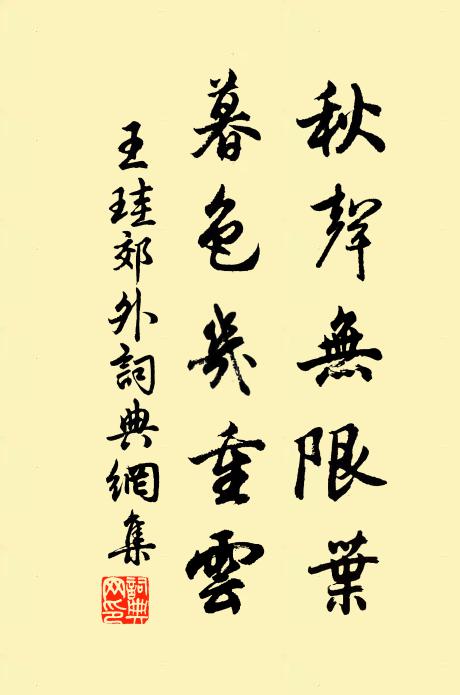 秋聲無限葉
暮色幾重雲
王珪郊外詞典網集
詞典网印